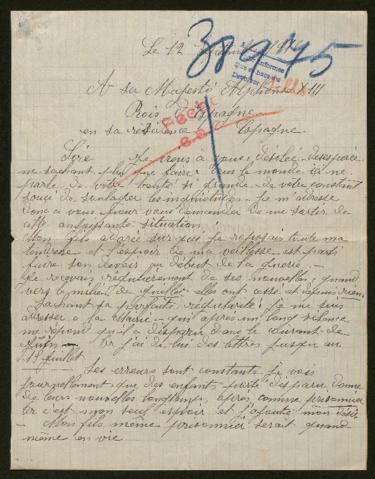 Le 12
30975
A Sa Majesté Alphonse XIII
Roi d'Espagne
en sa résidence Espagne.
Sire Je viens à vous, désolée, désespérée
ne sachant plus que faire! Tout le monde ici ne
parle de votre bonté si grande de votre constant
souci de soulager les inquiétudes. Je m'adresse
donc à vous pour vous demander de me sortir de
cette angoissante situation!
Mon fils adoré sur qui je reposais toute ma
tendresse et l'espoir de ma vieillesse est parti
faire son devoir au début de la guerre.
Je recevais régulièrement de ses nouvelles, quand
vers le milieu de Juillet elles ont cessé et depuis rien.
Sachant sa parfaite régularité! Je me suis
adressée à la Mairie qui après un long silence
me répond qu'il a disparu dans le courant de
Juin. Or j'ai de lui des lettres jusqu'au
18 juillet.
Les erreurs sont constantes. Je vois
journellement que des enfants portés disparus donnent
de leurs nouvelles longtemps après comme prisonnier
Or c'est mon seul espoir et j'ajoute mon désir
Mon fils même prisonnier serait quand
même en vie